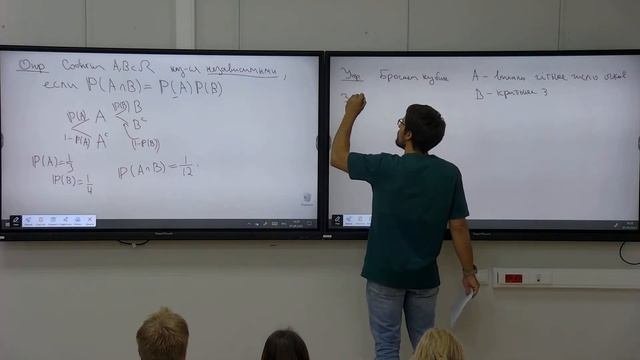 Опр События A,B⊂Ω наз-ся независимыми,
если P(A∩B) = P(A)P(B)
P(A) A P(B) B
B^c
1-P(A) A^c (1-P(B))
P(A)=1/3
P(B)=1/4
P(A∩B) = 1/12.
Упр Бросаем кубик A - выпало чётное число очков
B - кратные 3